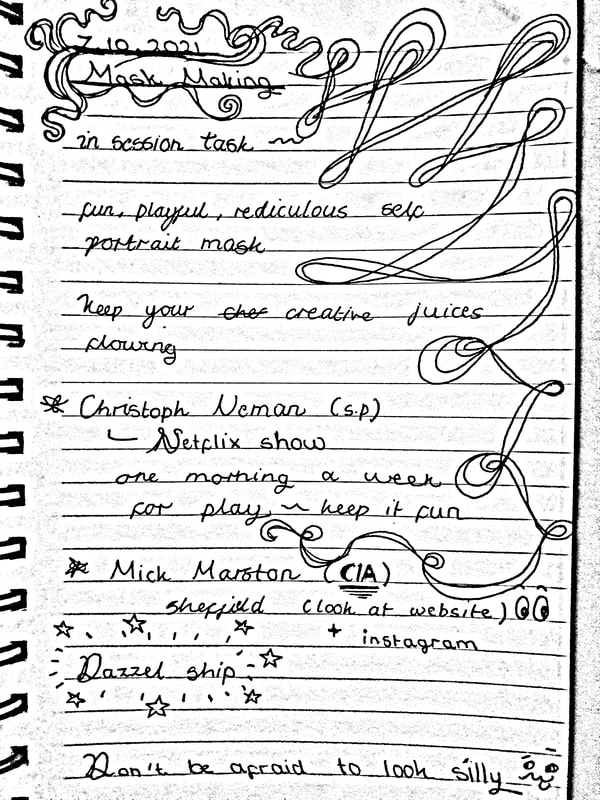 7.10.2021
Mask Making
in session task ~
fun, playful, rediculous self
portrait mask
Keep your chef creative juices
flowing
Christoph Neman (s.p)
Netflix show
one morning a week
for play ~ keep it fun
Mick Marston (CIA)
sheffield (look at website)
+ instagram
Dazzel ship
Don't be afraid to look silly